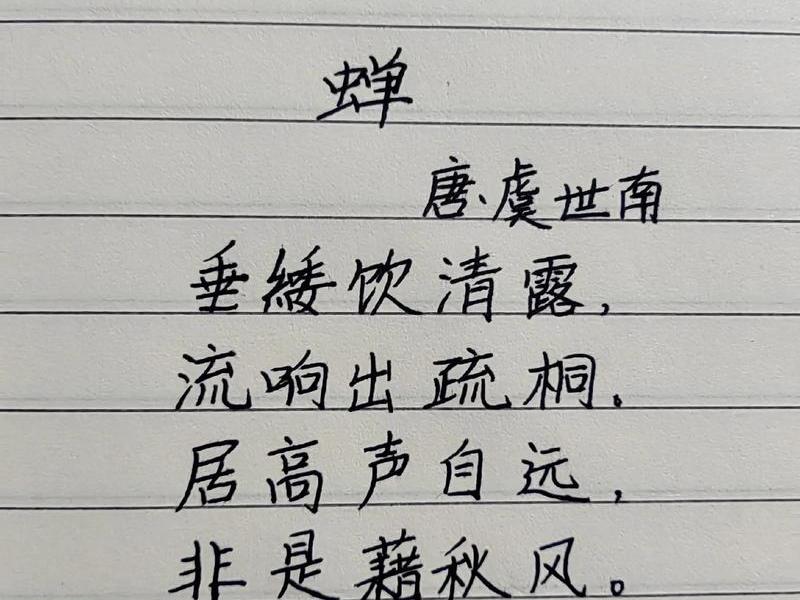 蝉
唐·虞世南
垂緌饮清露，
流响出疏桐。
居高声自远，
非是藉秋风。